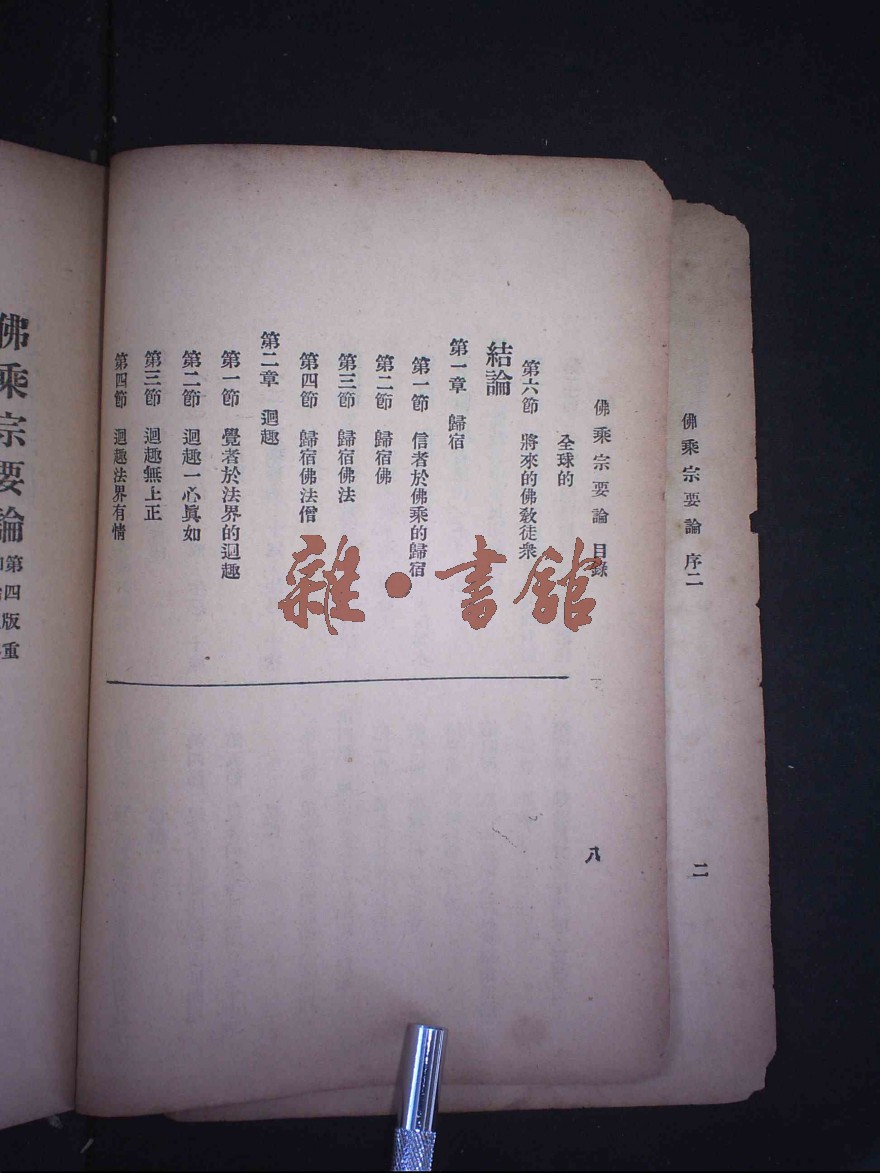 佛乘宗要論 序二
二
佛乘宗要論 目錄
八
全球的
第六節 將來的佛教徒衆
結論
第一章 歸宿
第一節 信者於佛乘的歸宿
第二節 歸宿佛
第三節 歸宿佛法
第四節 歸宿佛法僧
第二章 迴趣
第一節 覺者於法界的迴趣
第二節 迴趣一心眞如
第三節 迴趣無上正
第四節 迴趣法界有情
佛乘宗要論
第四版重
雜·書館